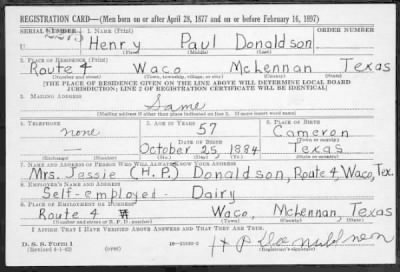 REGISTRATION CARD—(Men born on or after April 28, 1877 and on or before February 16, 1897)
SERIAL NUMBER 1. NAME (Print) ORDER NUMBER
Henry Paul Donaldson
(First) (Middle) (Last)
2. PLACE OF RESIDENCE (Print)
Route 4 Waco McLennan Texas
(Number and street) (Town, township, village, or city) (County) (State)
[THE PLACE OF RESIDENCE GIVEN ON THE LINE ABOVE WILL DETERMINE LOCAL BOARD
JURISDICTION; LINE 2 OF REGISTRATION CERTIFICATE WILL BE IDENTICAL]
3. MAILING ADDRESS
Same
[Mailing address if other than place indicated on line 2. If same insert word same]
4. TELEPHONE 5. AGE IN YEARS 6. PLACE OF BIRTH
none 57 Cameron
DATE OF BIRTH (Town or county)
— October 25, 1884 Texas
(Exchange) (Number) (Mo.) (Day) (Yr.) (State or country)
7. NAME AND ADDRESS OF PERSON WHO WILL ALWAYS KNOW YOUR ADDRESS
Mrs. Jessie (H.P.) Donaldson, Route 4, Waco, Tex.
8. EMPLOYER'S NAME AND ADDRESS
Self-employed - Dairy
9. PLACE OF EMPLOYMENT OR BUSINESS
Route 4 Waco, McLennan Texas
(Number and street or R. F. D. number) (Town) (County) (State)
I AFFIRM THAT I HAVE VERIFIED ABOVE ANSWERS AND THAT THEY ARE TRUE.
D. S. S. Form 1
(Revised 4-1-42) (over)
H P Donaldson